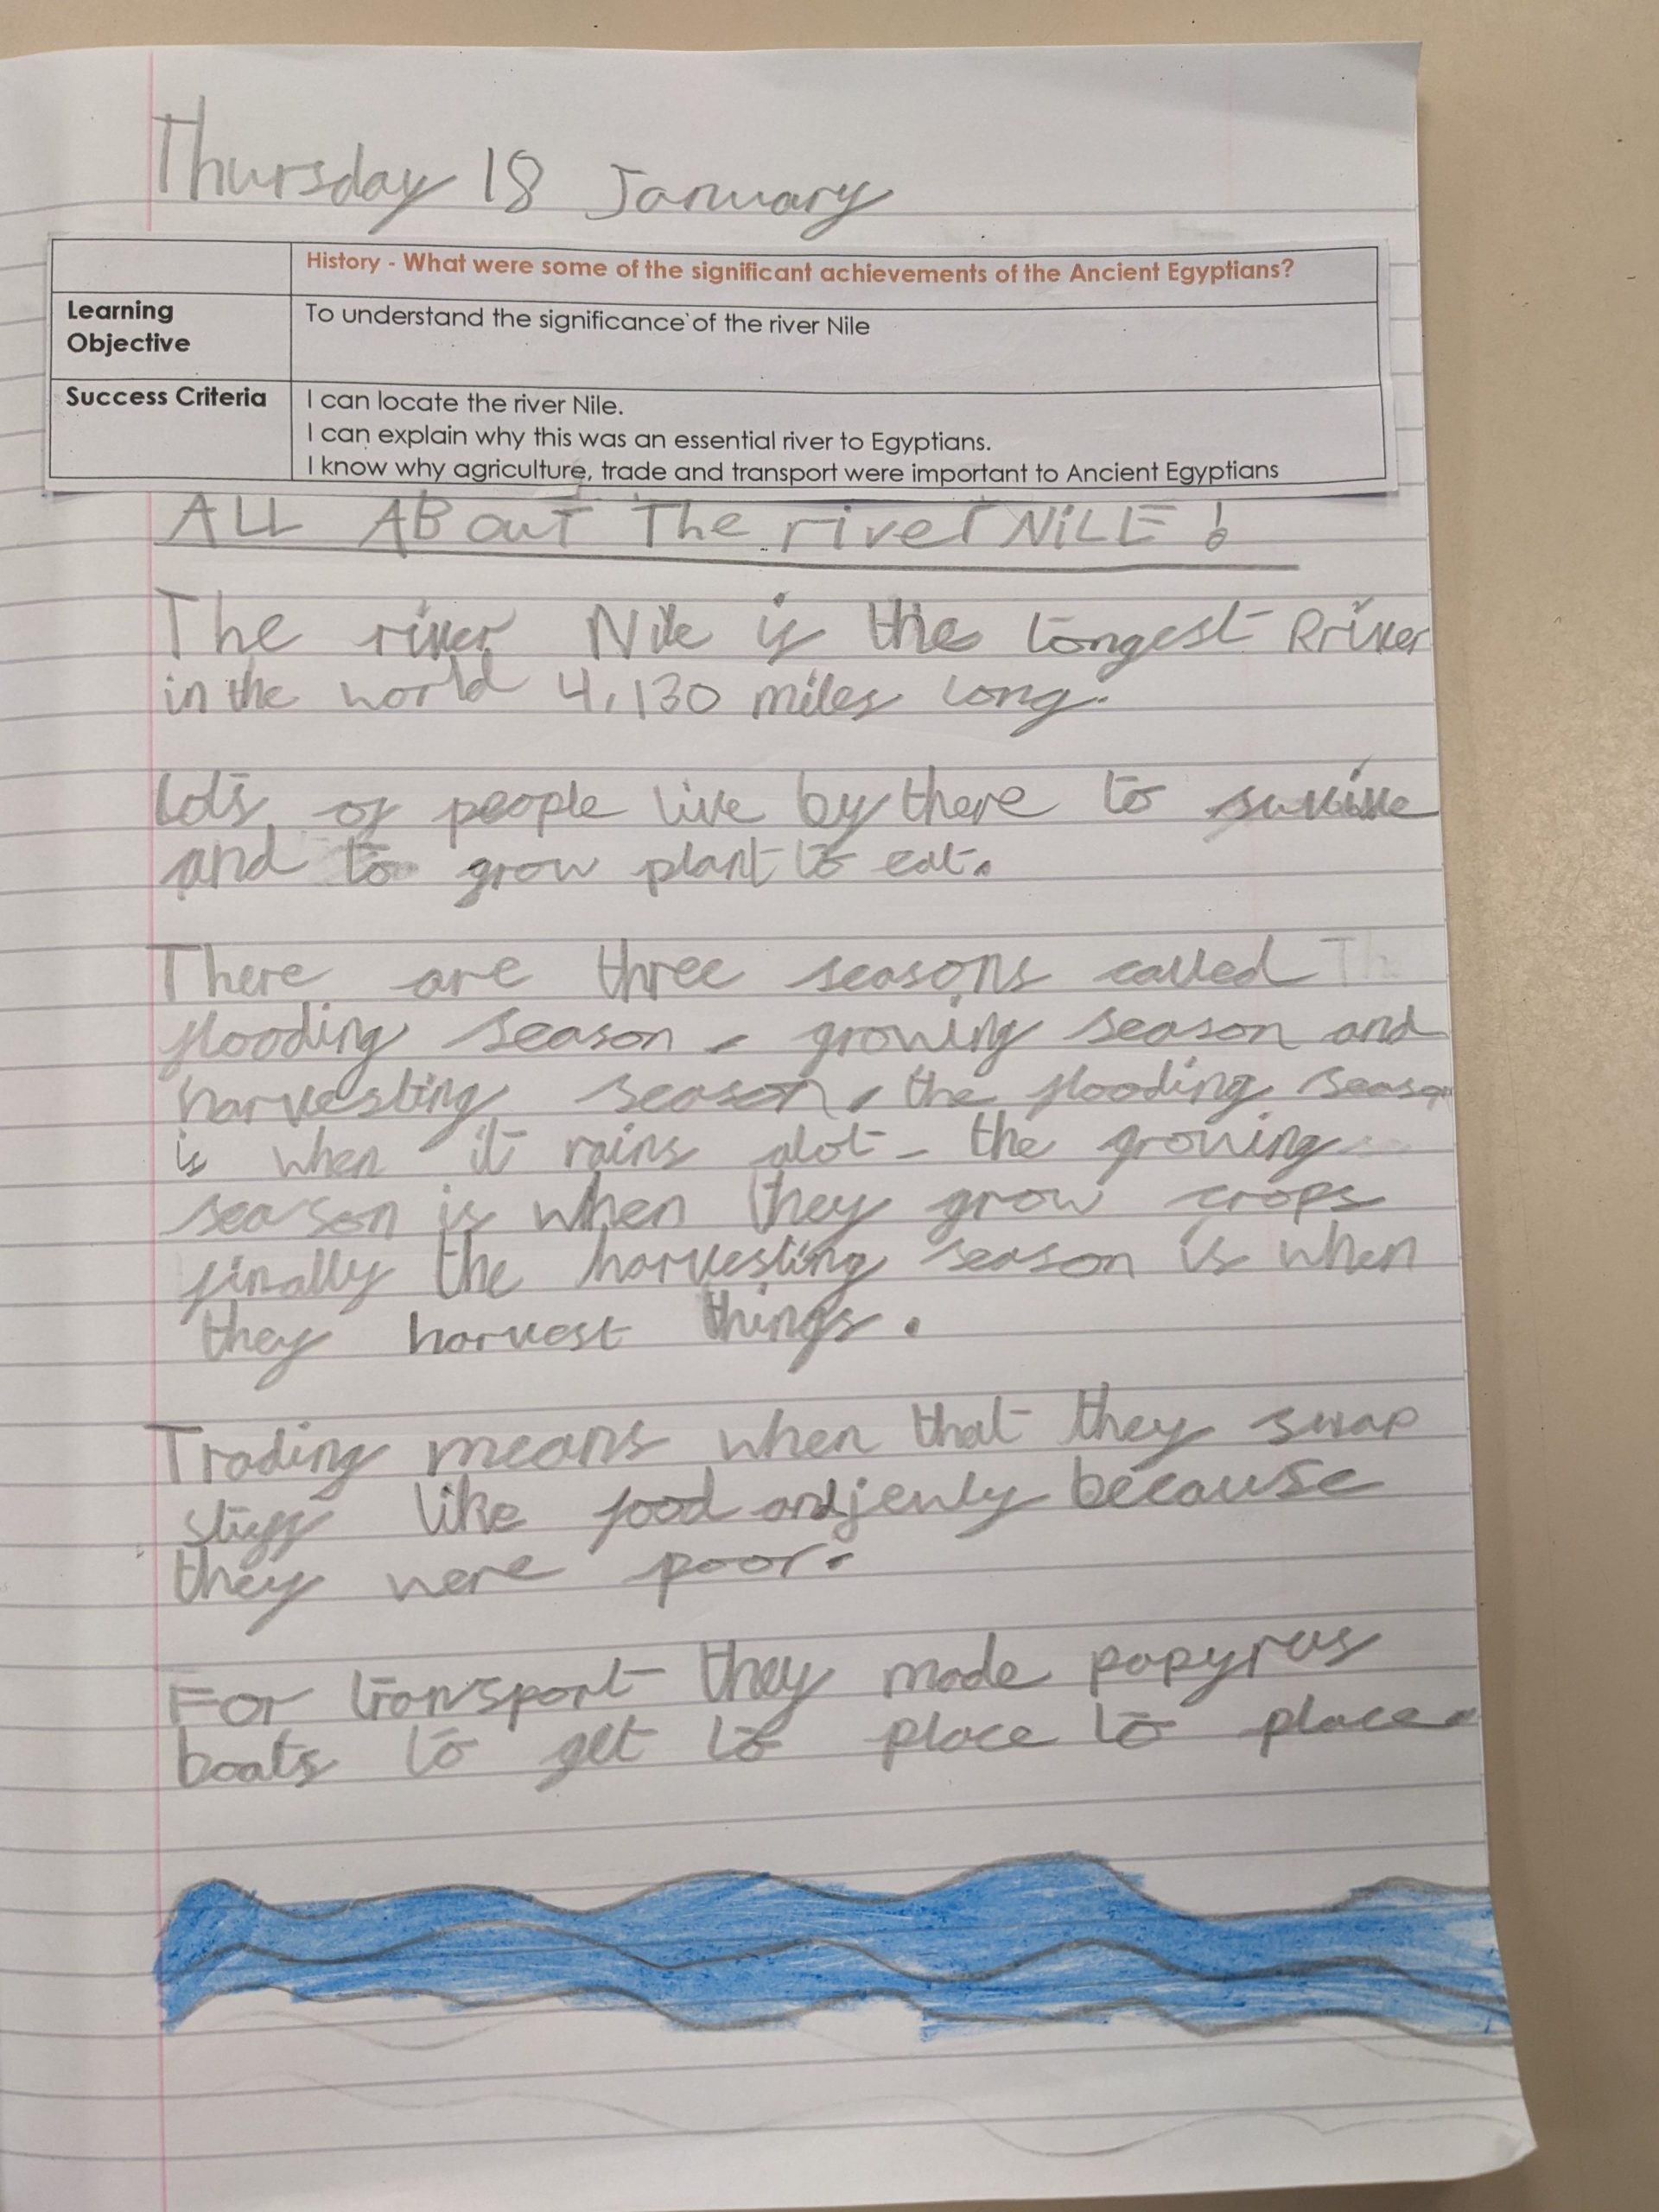 Thursday 18 January
History - What were some of the significant achievements of the Ancient Egyptians?
Learning Objective
To understand the significance of the river Nile
Success Criteria
I can locate the river Nile.
I can explain why this was an essential river to Egyptians.
I know why agriculture, trade and transport were important to Ancient Egyptians
ALL ABouT The river NiLE!
The river Nile is the longest Rriver
in the world 4,130 miles long.
Lots of people live by there to survive
and to grow plant to eat.
There are three seasons called Th
flooding season, growing season and
harvesting season, the flooding season
is when it rains alot - the growing
season is when they grow crops
finally the harvesting season is when
they harvest things.
Trading means when that they swap
stuff like food and jenly because
they were poor.
For transport they made papyrus
boats to get to place to place.